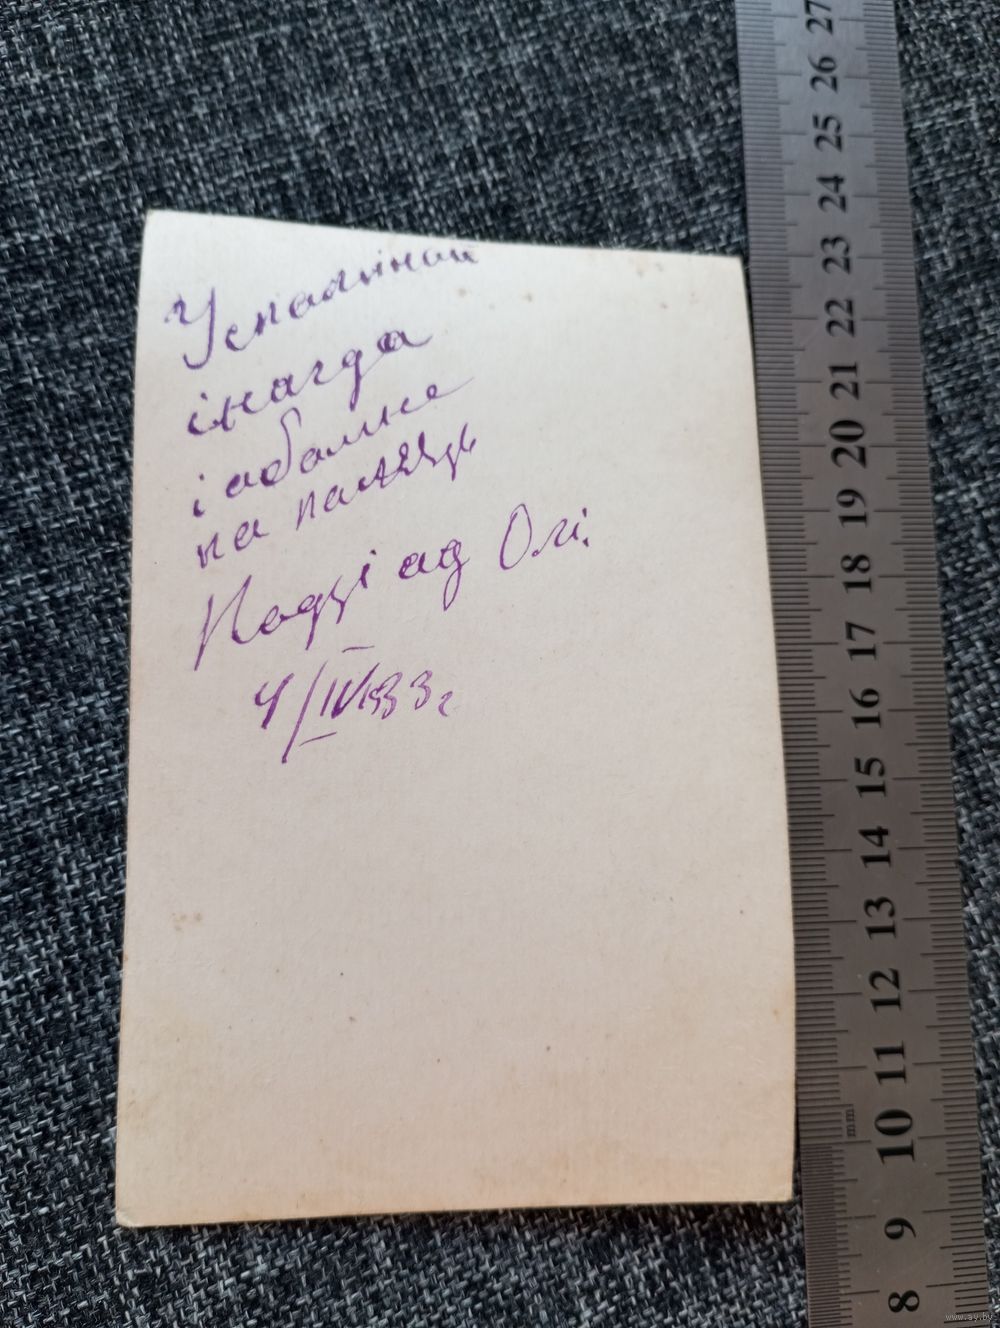 Успамінай
інагда
і абамне
на памяць
Надзі ад Олі.
4/IV 33г
27
26
25
24
23
22
21
20
19
18
17
16
15
14
13
12
11
mm
10
9
8
www.ay.by